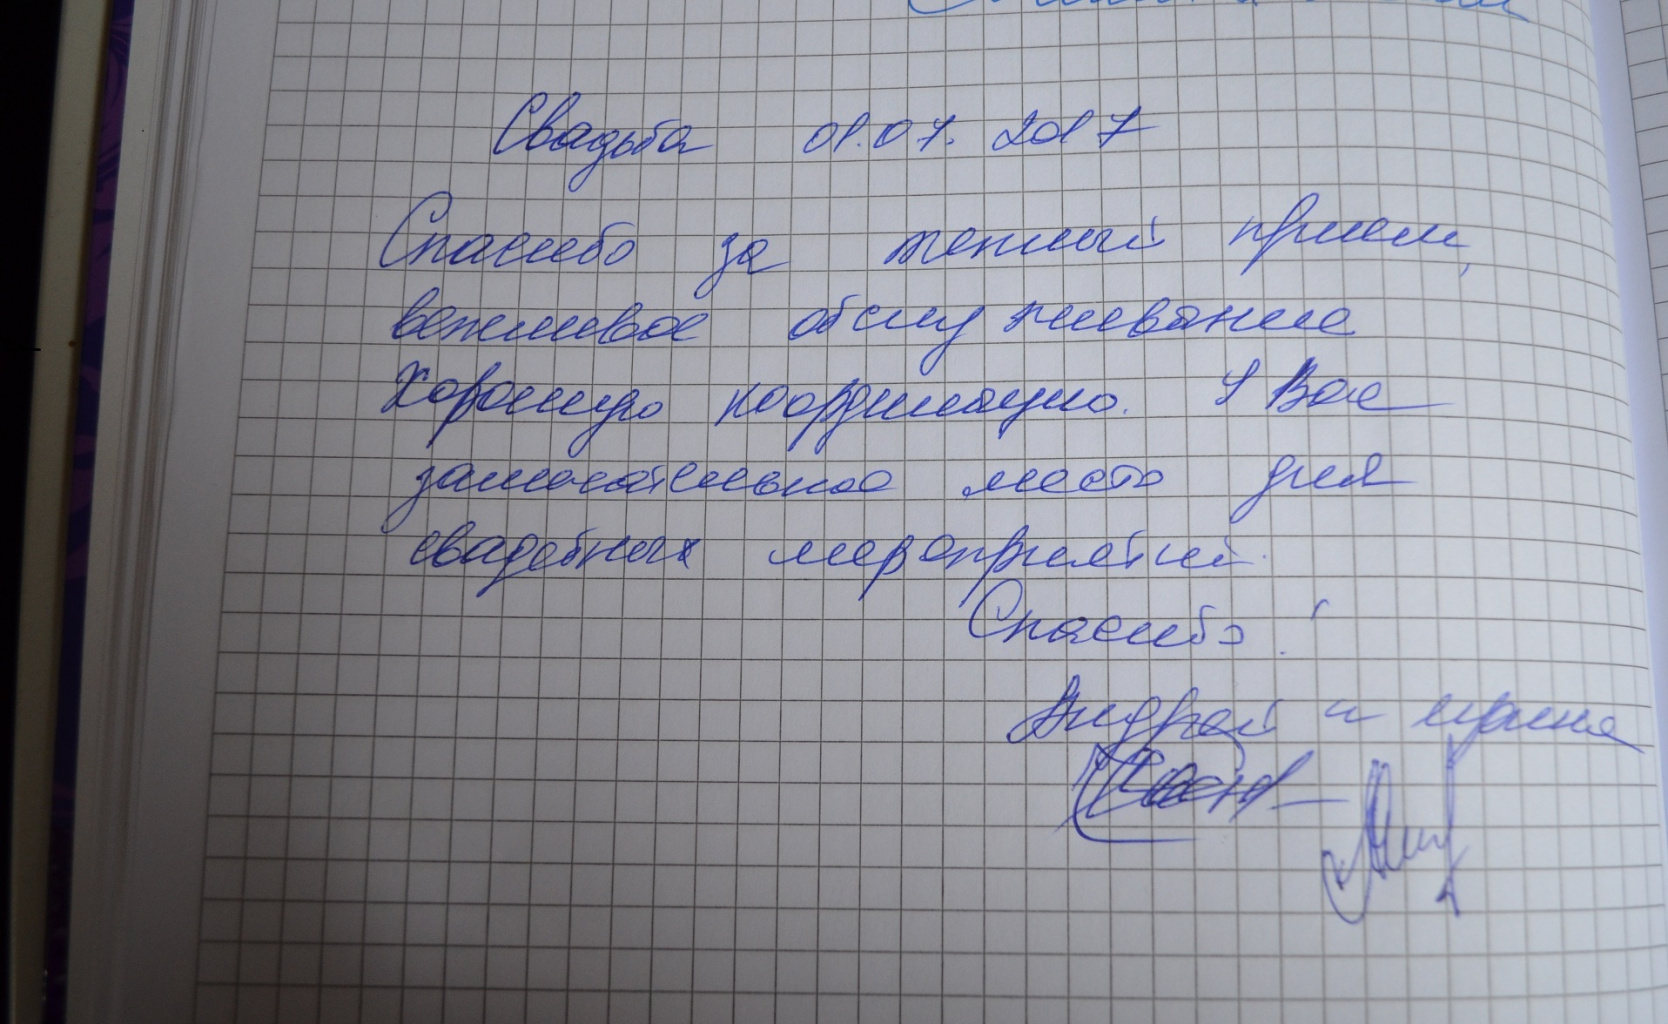 Свадьба 01.07.2017
Спасибо за теплый прием,
вежливое обслуживание
Хорошую координацию. У Вас
замечательное место для
свадебных мероприятий.
Спасибо!
Андрей и Ирина